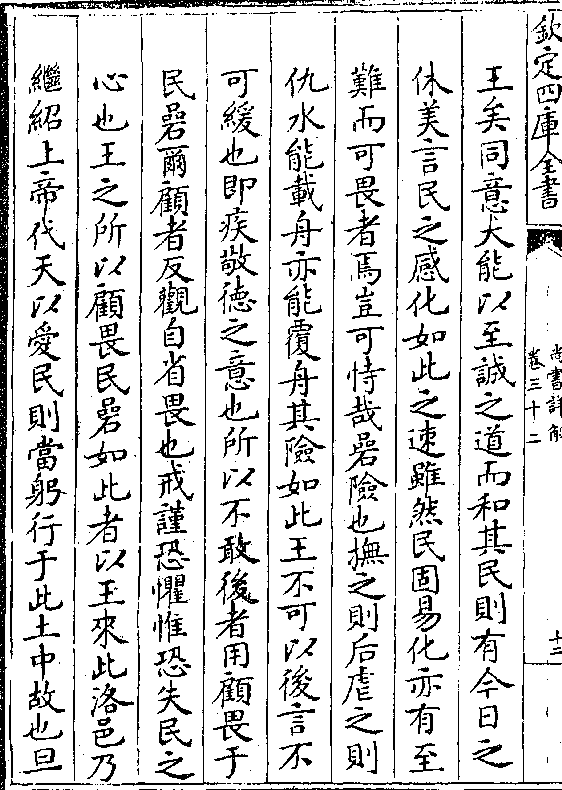 欽定四庫全書
尚書詳解
卷三十二
十二
王矣同意大能以至誠之道而和其民則有今日之
休美言民之感化如此之速雖然民固易化亦有至
難而可畏者焉豈可恃哉碞險也撫之則后虐之則
仇水能載舟亦能覆舟其險如此王不可以後言不
可緩也即疾敬德之意也所以不敢後者用顧畏于
民碞爾顧者反觀自省畏也戒謹恐懼惟恐失民之
心也王之所以顧畏民碞如此者以王來此洛邑乃
繼紹上帝代天以愛民則當躬行于此土中故也旦